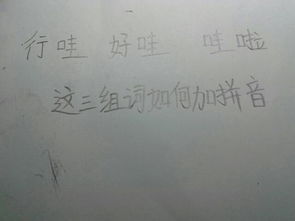 行哇 好哇 哇啦
这三组词如何加拼音